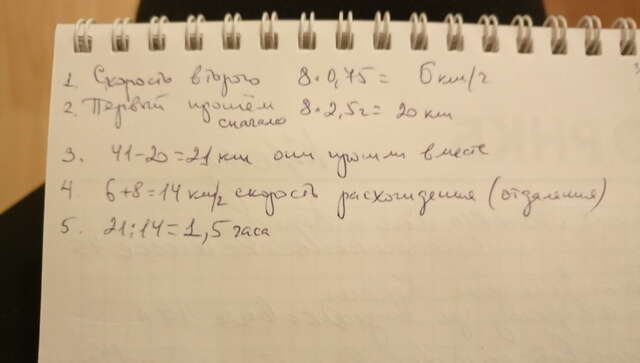 1. Скорость второго 8·0,75= 6 км/г
2. Первый прошём 8·2,5г= 20 км
сначало
3. 41-20=21 км они прошли вместе
4. 6+8=14 км/г скорость расхожидения (отдаления)
5. 21:14=1,5 часа